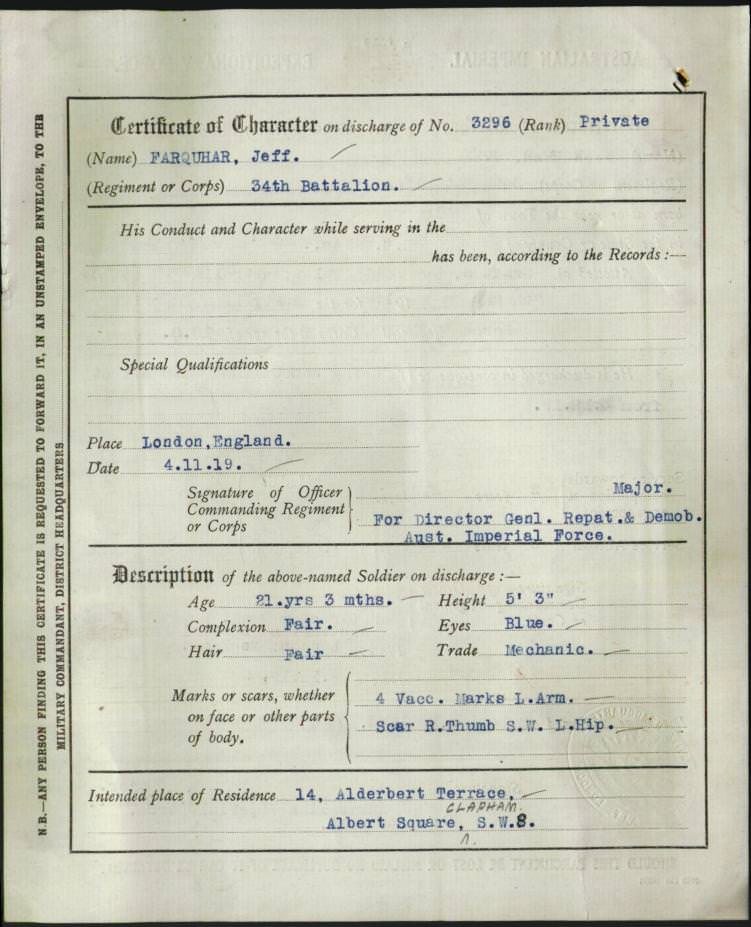 Certificate of Character on discharge of No. 3296 (Rank) Private
(Name) FARQUHAR, Jeff.
(Regiment or Corps) 34th Battalion.
His Conduct and Character while serving in the
has been, according to the Records :—
Special Qualifications
Place London, England.
Date 4.11.19.
Signature of Officer
Commanding Regiment
or Corps
Major.
For Director Genl. Repat.& Demob.
Aust. Imperial Force.
Description of the above-named Soldier on discharge :—
Age 21.yrs 3 mths. Height 5' 3"
Complexion Fair. Eyes Blue.
Hair Fair Trade Mechanic.
Marks or scars, whether
on face or other parts
of body.
4 Vacc. Marks L.Arm.
Scar R.Thumb S.W. L.Hip.
Intended place of Residence 14, Alderbert Terrace,
CLAPHAM.
Albert Square, S.W.8.
N.B.—ANY PERSON FINDING THIS CERTIFICATE IS REQUESTED TO FORWARD IT, IN AN UNSTAMPED ENVELOPE, TO THE
MILITARY COMMANDANT, DISTRICT HEADQUARTERS